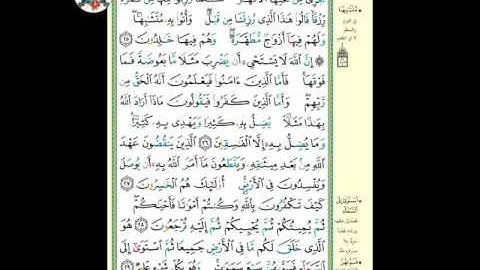 رِزْقًا قَالُوا۟ هَـٰذَا ٱلَّذِى رُزِقْنَا مِن قَبْلُ وَأُتُوا۟ بِهِۦ مُتَشَـٰبِهًا
وَلَهُمْ فِيهَآ أَزْوَٰجٌ مُّطَهَّرَةٌ وَهُمْ فِيهَا خَـٰلِدُونَ ٢٥
إِنَّ ٱللَّهَ لَا يَسْتَحْىِۦٓ أَن يَضْرِبَ مَثَلًا مَّا بَعُوضَةً فَمَا
فَوْقَهَا فَأَمَّا ٱلَّذِينَ ءَامَنُوا۟ فَيَعْلَمُونَ أَنَّهُ ٱلْحَقُّ مِن
رَّبِّهِمْ وَأَمَّا ٱلَّذِينَ كَفَرُوا۟ فَيَقُولُونَ مَاذَآ أَرَادَ ٱللَّهُ
بِهَـٰذَا مَثَلًا يُضِلُّ بِهِۦ كَثِيرًا وَيَهْدِى بِهِۦ كَثِيرًا
وَمَا يُضِلُّ بِهِۦٓ إِلَّا ٱلْفَـٰسِقِينَ ٢٦ ٱلَّذِينَ يَنقُضُونَ عَهْدَ
ٱللَّهِ مِنۢ بَعْدِ مِيثَـٰقِهِۦ وَيَقْطَعُونَ مَآ أَمَرَ ٱللَّهُ بِهِۦٓ أَن يُوصَلَ
وَيُفْسِدُونَ فِى ٱلْأَرْضِ أُو۟لَـٰٓئِكَ هُمُ ٱلْخَـٰسِرُونَ ٢٧
كَيْفَ تَكْفُرُونَ بِٱللَّهِ وَكُنتُمْ أَمْوَٰتًا فَأَحْيَـٰكُمْ
ثُمَّ يُمِيتُكُمْ ثُمَّ يُحْيِيكُمْ ثُمَّ إِلَيْهِ تُرْجَعُونَ ٢٨ هُوَ
ٱلَّذِى خَلَقَ لَكُم مَّا فِى ٱلْأَرْضِ جَمِيعًا ثُمَّ ٱسْتَوَىٰٓ إِلَى